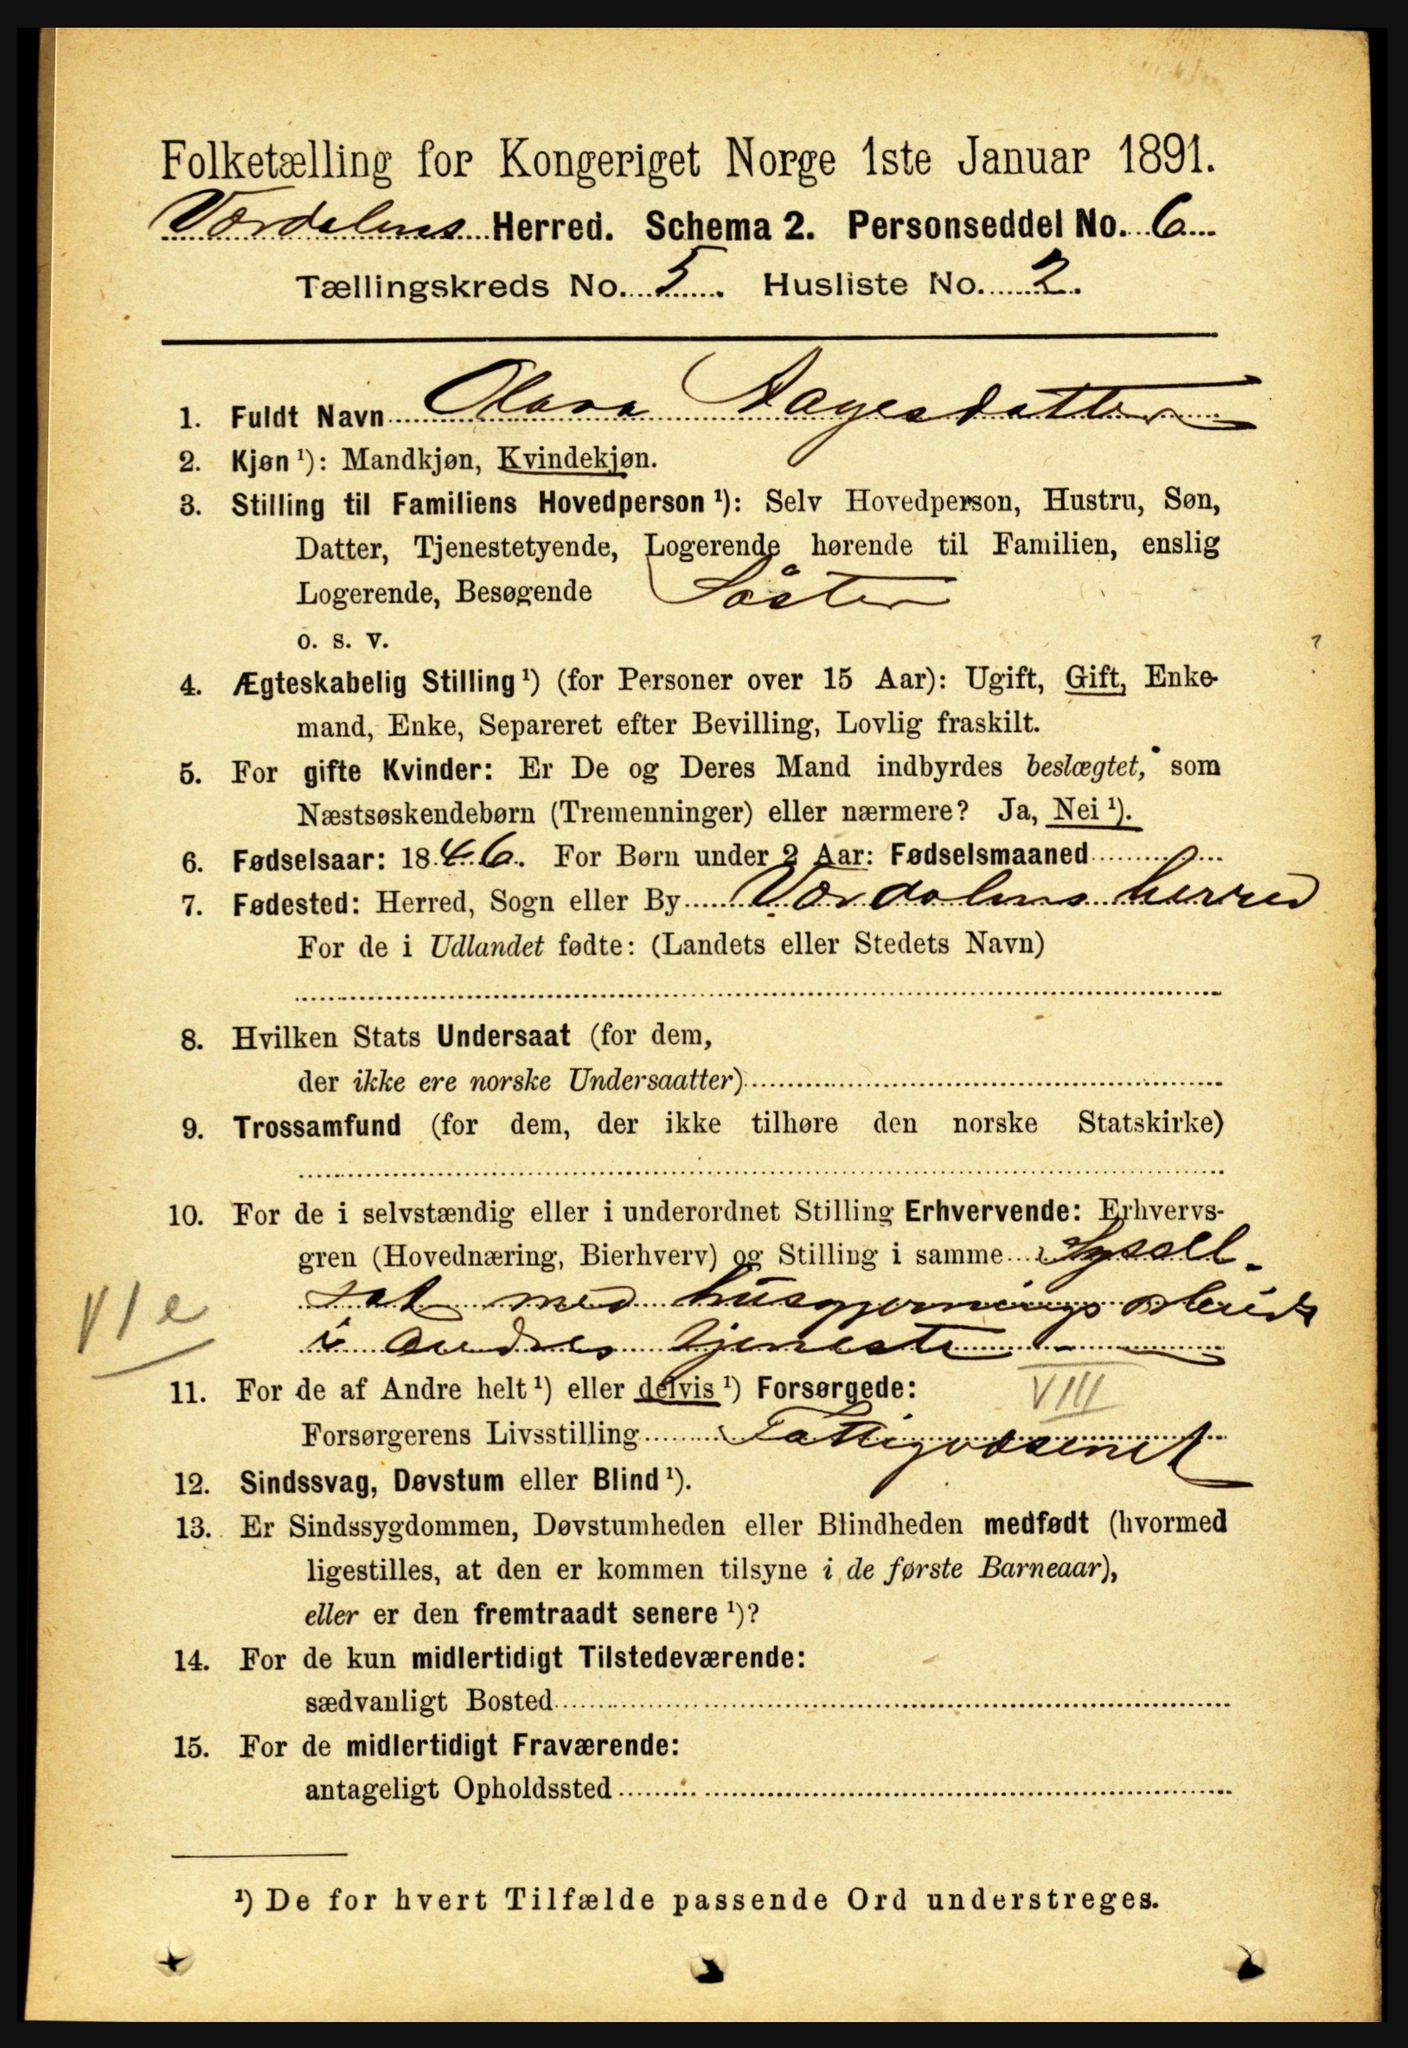 Folketælling for Kongeriget Norge 1ste Januar 1891.
Værdalens Herred. Schema 2. Personseddel No. 6
Tællingskreds No. 5. Husliste No. 2.
1. Fuldt Navn Olava Aagesdatter
2. Kjøn ¹): Mandkjøn, Kvindekjøn.
3. Stilling til Familiens Hovedperson ¹): Selv Hovedperson, Hustru, Søn,
Datter, Tjenestetyende, Logerende hørende til Familien, enslig
Logerende, Besøgende Søster
o. s. v.
4. Ægteskabelig Stilling ¹) (for Personer over 15 Aar): Ugift, Gift, Enke-
mand, Enke, Separeret efter Bevilling, Lovlig fraskilt.
5. For gifte Kvinder: Er De og Deres Mand indbyrdes beslægtet, som
Næstsøskendebørn (Tremenninger) eller nærmere? Ja, Nei ¹).
6. Fødselsaar: 1846. For Børn under 2 Aar: Fødselsmaaned
7. Fødested: Herred, Sogn eller By Værdalens herred
For de i Udlandet fødte: (Landets eller Stedets Navn)
8. Hvilken Stats Undersaat (for dem,
der ikke ere norske Undersaatter)
9. Trossamfund (for dem, der ikke tilhøre den norske Statskirke)
10. For de i selvstændig eller i underordnet Stilling Erhvervende: Erhvervs-
gren (Hovednæring, Bierhverv) og Stilling i samme Syssel-
sat med husgjernings arbeide
VIe
i andres tjeneste
11. For de af Andre helt ¹) eller delvis ¹) Forsørgede:
VIII
Forsørgerens Livsstilling Fattigvæsenet
12. Sindssvag, Døvstum eller Blind ¹).
13. Er Sindssygdommen, Døvstumheden eller Blindheden medfødt (hvormed
ligestilles, at den er kommen tilsyne i de første Barneaar),
eller er den fremtraadt senere ¹)?
14. For de kun midlertidigt Tilstedeværende:
sædvanligt Bosted
15. For de midlertidigt Fraværende:
antageligt Opholdssted
¹) De for hvert Tilfælde passende Ord understreges.